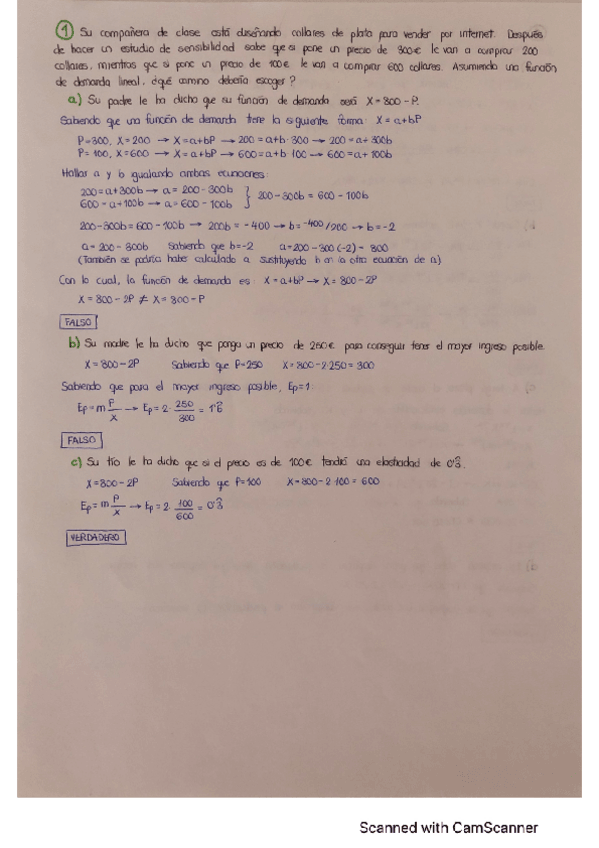 1 Su compañera de clase está diseñando collares de plata para vender por internet. Después
de hacer un estudio de sensibilidad sabe que si pone un precio de 300€ le van a comprar 200
collares, mientras que si pone un precio de 100€ le van a comprar 600 collares. Asumiendo una función
de demanda lineal, ¿qué camino debería escoger?
a) Su padre le ha dicho que su función de demanda será X = 800 - P.
Sabiendo que una función de demanda tiene la siguiente forma: X = a+bP
P=300, X=200 → X=a+bP → 200=a+b·300 → 200=a+300b
P=100, X=600 → X=a+bP → 600=a+b·100 → 600=a+100b
Hallar a y b igualando ambas ecuaciones:
200=a+300b → a= 200-300b
600=a+100b → a= 600-100b } 200-300b = 600-100b
200-300b=600-100b → 200b=-400 → b=-400/200 → b=-2
a= 200-300b Sabiendo que b=-2 a=200-300·(-2)= 800
(También se podría haber calculado a sustituyendo b en la otra ecuación de a)
Con lo cual, la función de demanda es: X=a+bP → X=800-2P
X=800-2P ≠ X=800-P
FALSO
b) Su madre le ha dicho que ponga un precio de 250€ para conseguir tener el mayor ingreso posible.
X=800-2P Sabiendo que P=250 X=800-2·250=300
Sabiendo que para el mayor ingreso posible, Ep=1:
Ep=m P/X → Ep=2· 250/300 = 1'6̂
FALSO
c) Su tío le ha dicho que si el precio es de 100€ tendrá una elasticidad de 0'3̂.
X=800-2P Sabiendo que P=100 X=800-2·100=600
Ep=m P/X → Ep=2· 100/600 = 0'3̂
VERDADERO
Scanned with CamScanner